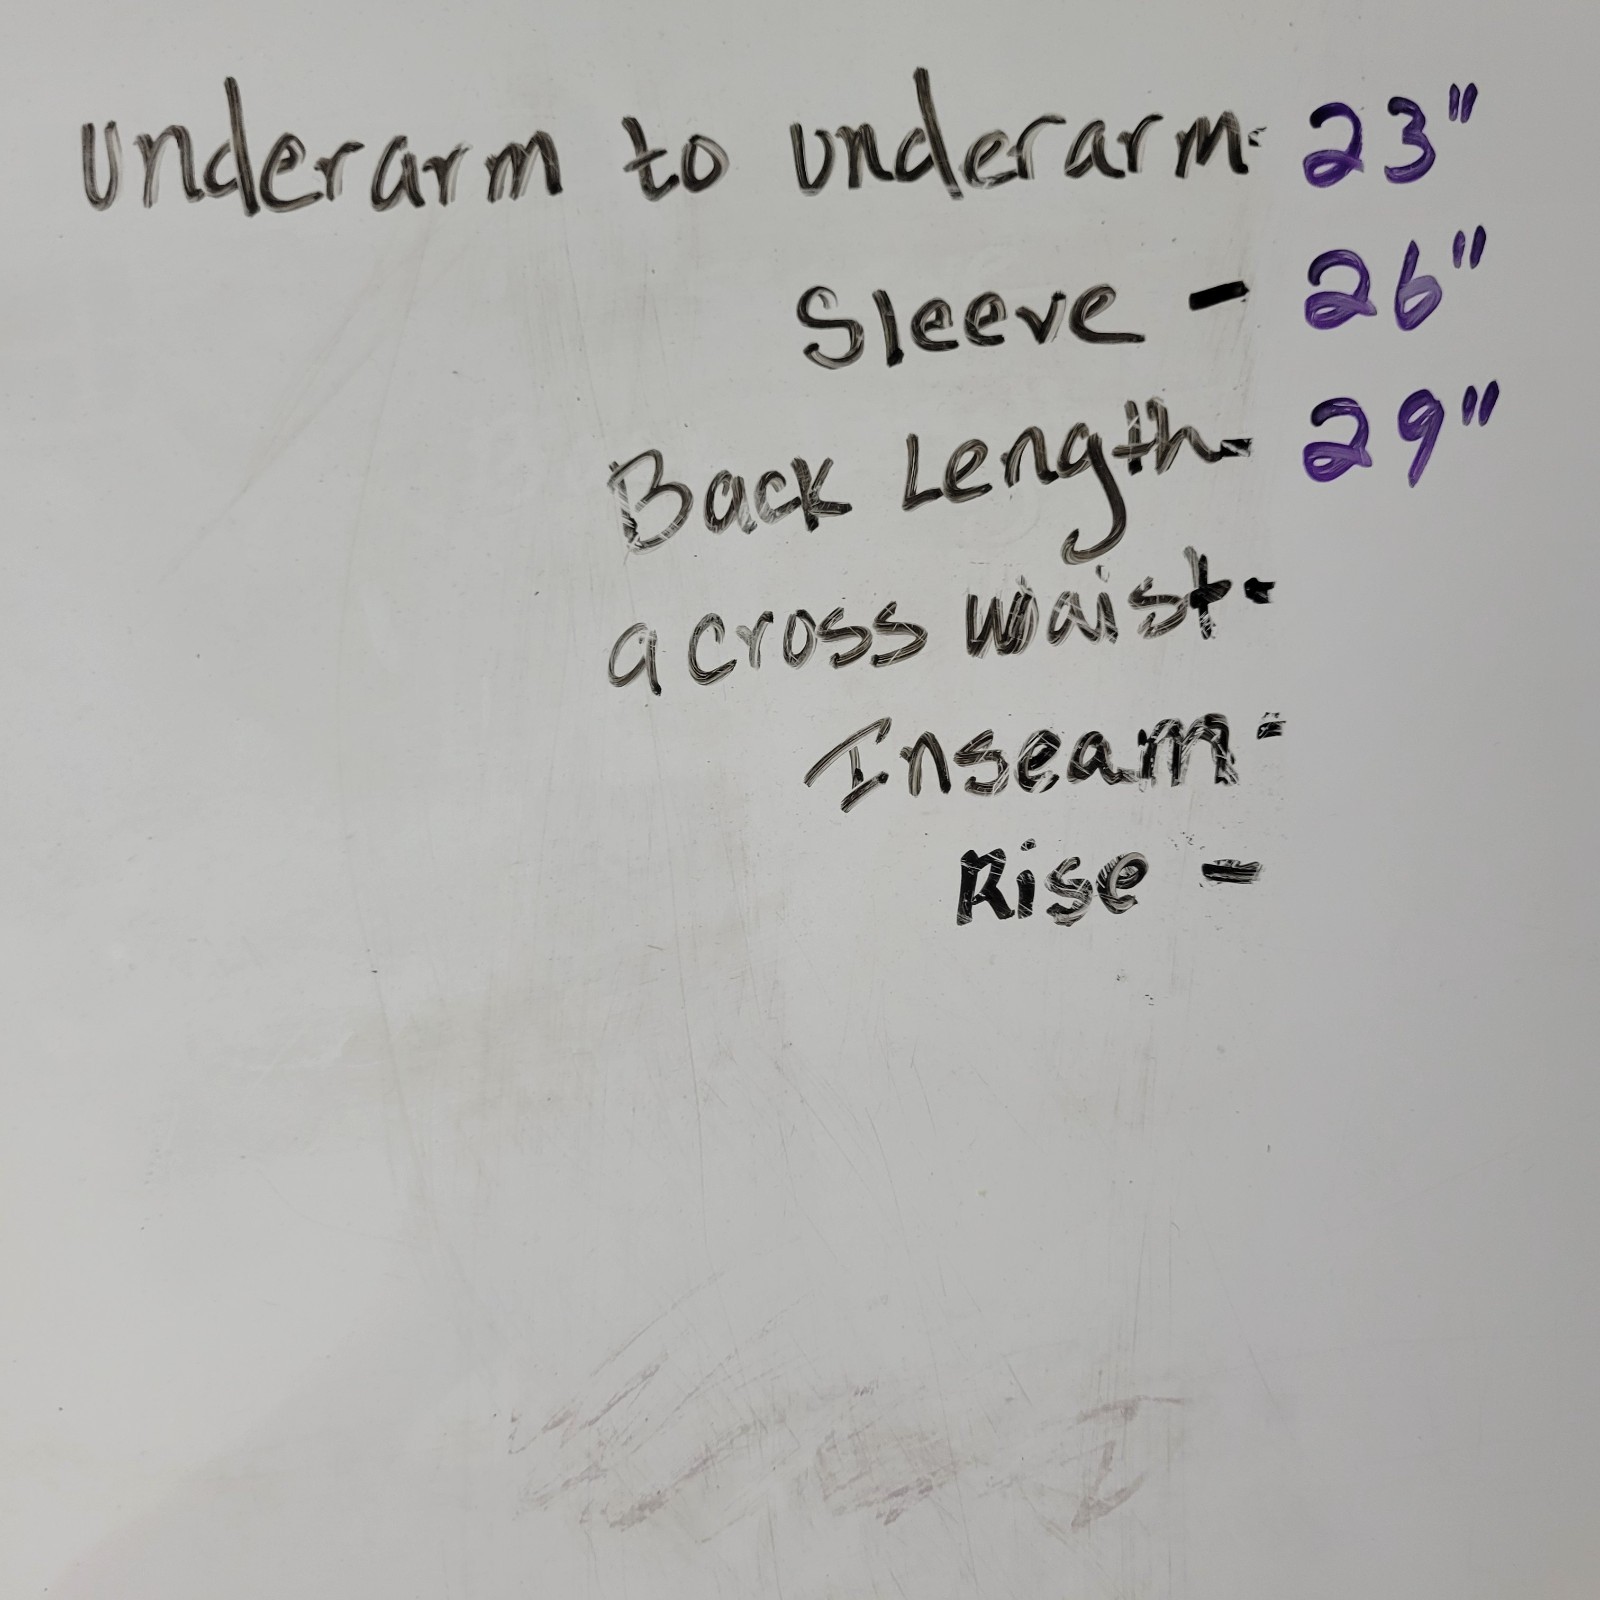 underarm to underarm- 23"
Sleeve - 26"
Back Length- 29"
across waist-
Inseam-
Rise -